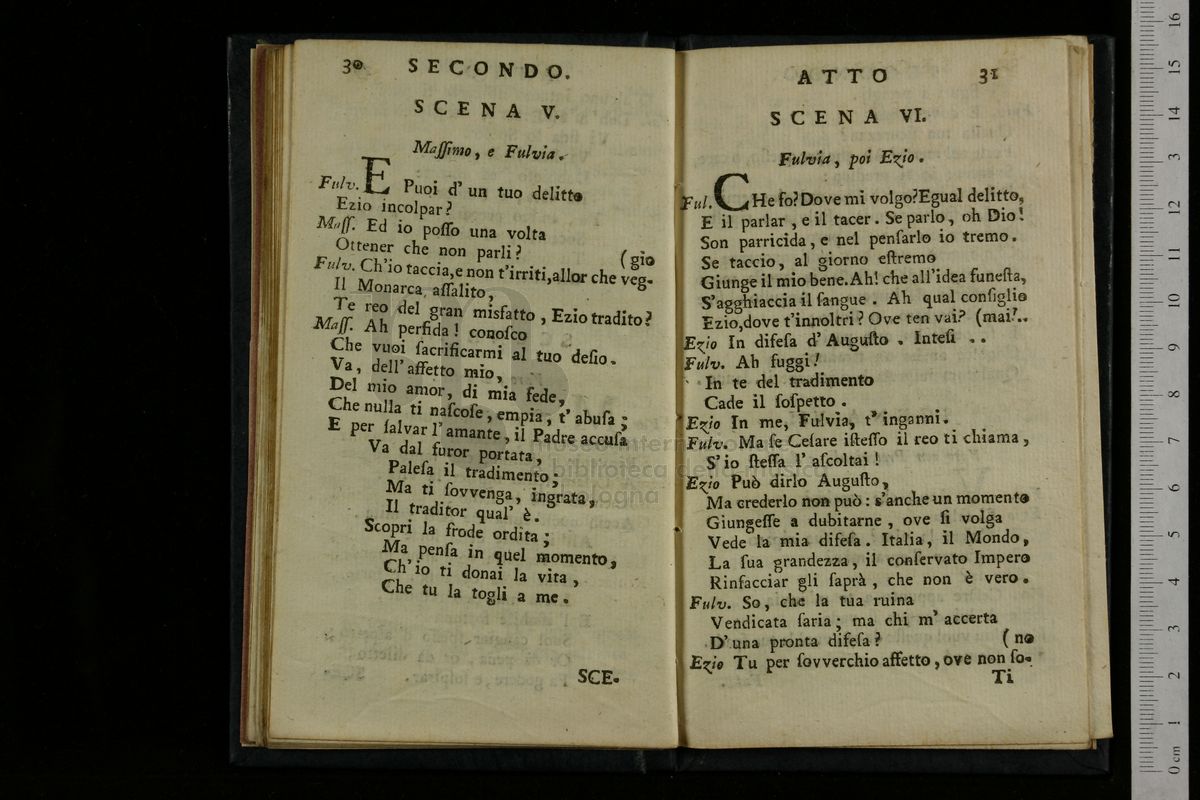 30 SECONDO.
SCENA V.
Maſſimo, e Fulvia.
Fulv. E Puoi d' un tuo delitto
Ezio incolpar?
Maſſ. Ed io poſſo una volta
Ottener che non parli? (gio
Fulv. Ch'io taccia, e non t'irriti, allor che veg-
Il Monarca aſſalito,
Te reo del gran misfatto, Ezio tradito?
Maſſ. Ah perfida! conoſco
Che vuoi ſacrificarmi al tuo deſio.
Va, dell' affetto mio,
Del mio amor, di mia fede,
Che nulla ti naſcoſe, empia, t' abuſa;
E per ſalvar l' amante, il Padre accuſa
Va dal furor portata,
Paleſa il tradimento;
Ma ti ſovvenga, ingrata,
Il traditor qual' è.
Scopri la frode ordita;
Ma penſa in quel momento,
Ch' io ti donai la vita,
Che tu la togli a me.
SCE-
ATTO 31
SCENA VI.
Fulvia, poi Ezio.
Ful. CHe fo? Dove mi volgo? Egual delitto,
E il parlar, e il tacer. Se parlo, oh Dio!
Son parricida, e nel penſarlo io tremo.
Se taccio, al giorno eſtremo
Giunge il mio bene. Ah! che all' idea funeſta,
S'agghiaccia il ſangue. Ah qual conſiglio
Ezio, dove t'innoltri? Ove ten vai? (mai?..
Ezio In difeſa d' Auguſto. Inteſi ..
Fulv. Ah fuggi!
In te del tradimento
Cade il ſoſpetto.
Ezio In me, Fulvia, t' inganni.
Fulv. Ma ſe Ceſare iſteſſo il reo ti chiama,
S' io ſteſſa l' aſcoltai!
Ezio Può dirlo Auguſto,
Ma crederlo non può: s'anche un momento
Giungeſſe a dubitarne, ove ſi volga
Vede la mia difeſa. Italia, il Mondo,
La ſua grandezza, il conſervato Impero
Rinfacciar gli ſaprà, che non è vero.
Fulv. So, che la tua ruina
Vendicata ſaria; ma chi m' accerta
D' una pronta difeſa? (no
Ezio Tu per ſovverchio affetto, ove non ſo-
Ti
museo internazionale
biblioteca della musica
bologna
0 cm 1 2 3 4 5 6 7 8 9 10 11 12 13 14 15 16